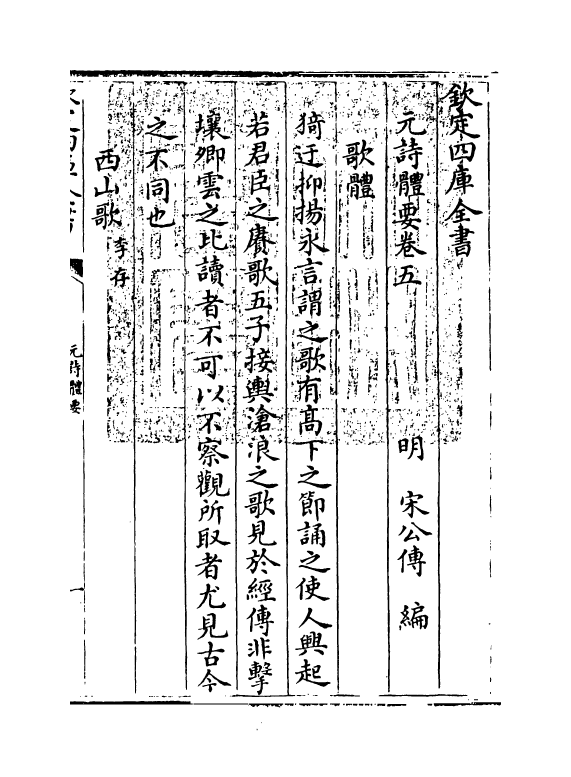 欽定四庫全書
元詩體要卷五
明　宋公傳　編
歌體
猗迂抑揚永言謂之歌有髙下之節誦之使人興起
若君臣之賡歌五子接輿滄浪之歌見於經傳非擊
壤卿雲之比讀者不可以不察觀所取者尤見古今
之不同也
西山歌　李存
元詩體要
一